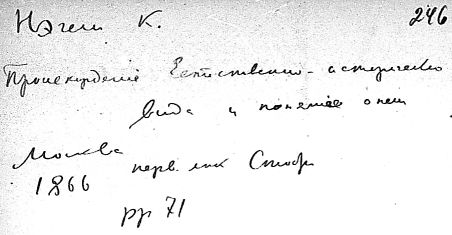 Нэгели К. 246
Происхождение Естественно-исторического
вида и понятие о нем
Москва
1866 перв.
pp 71